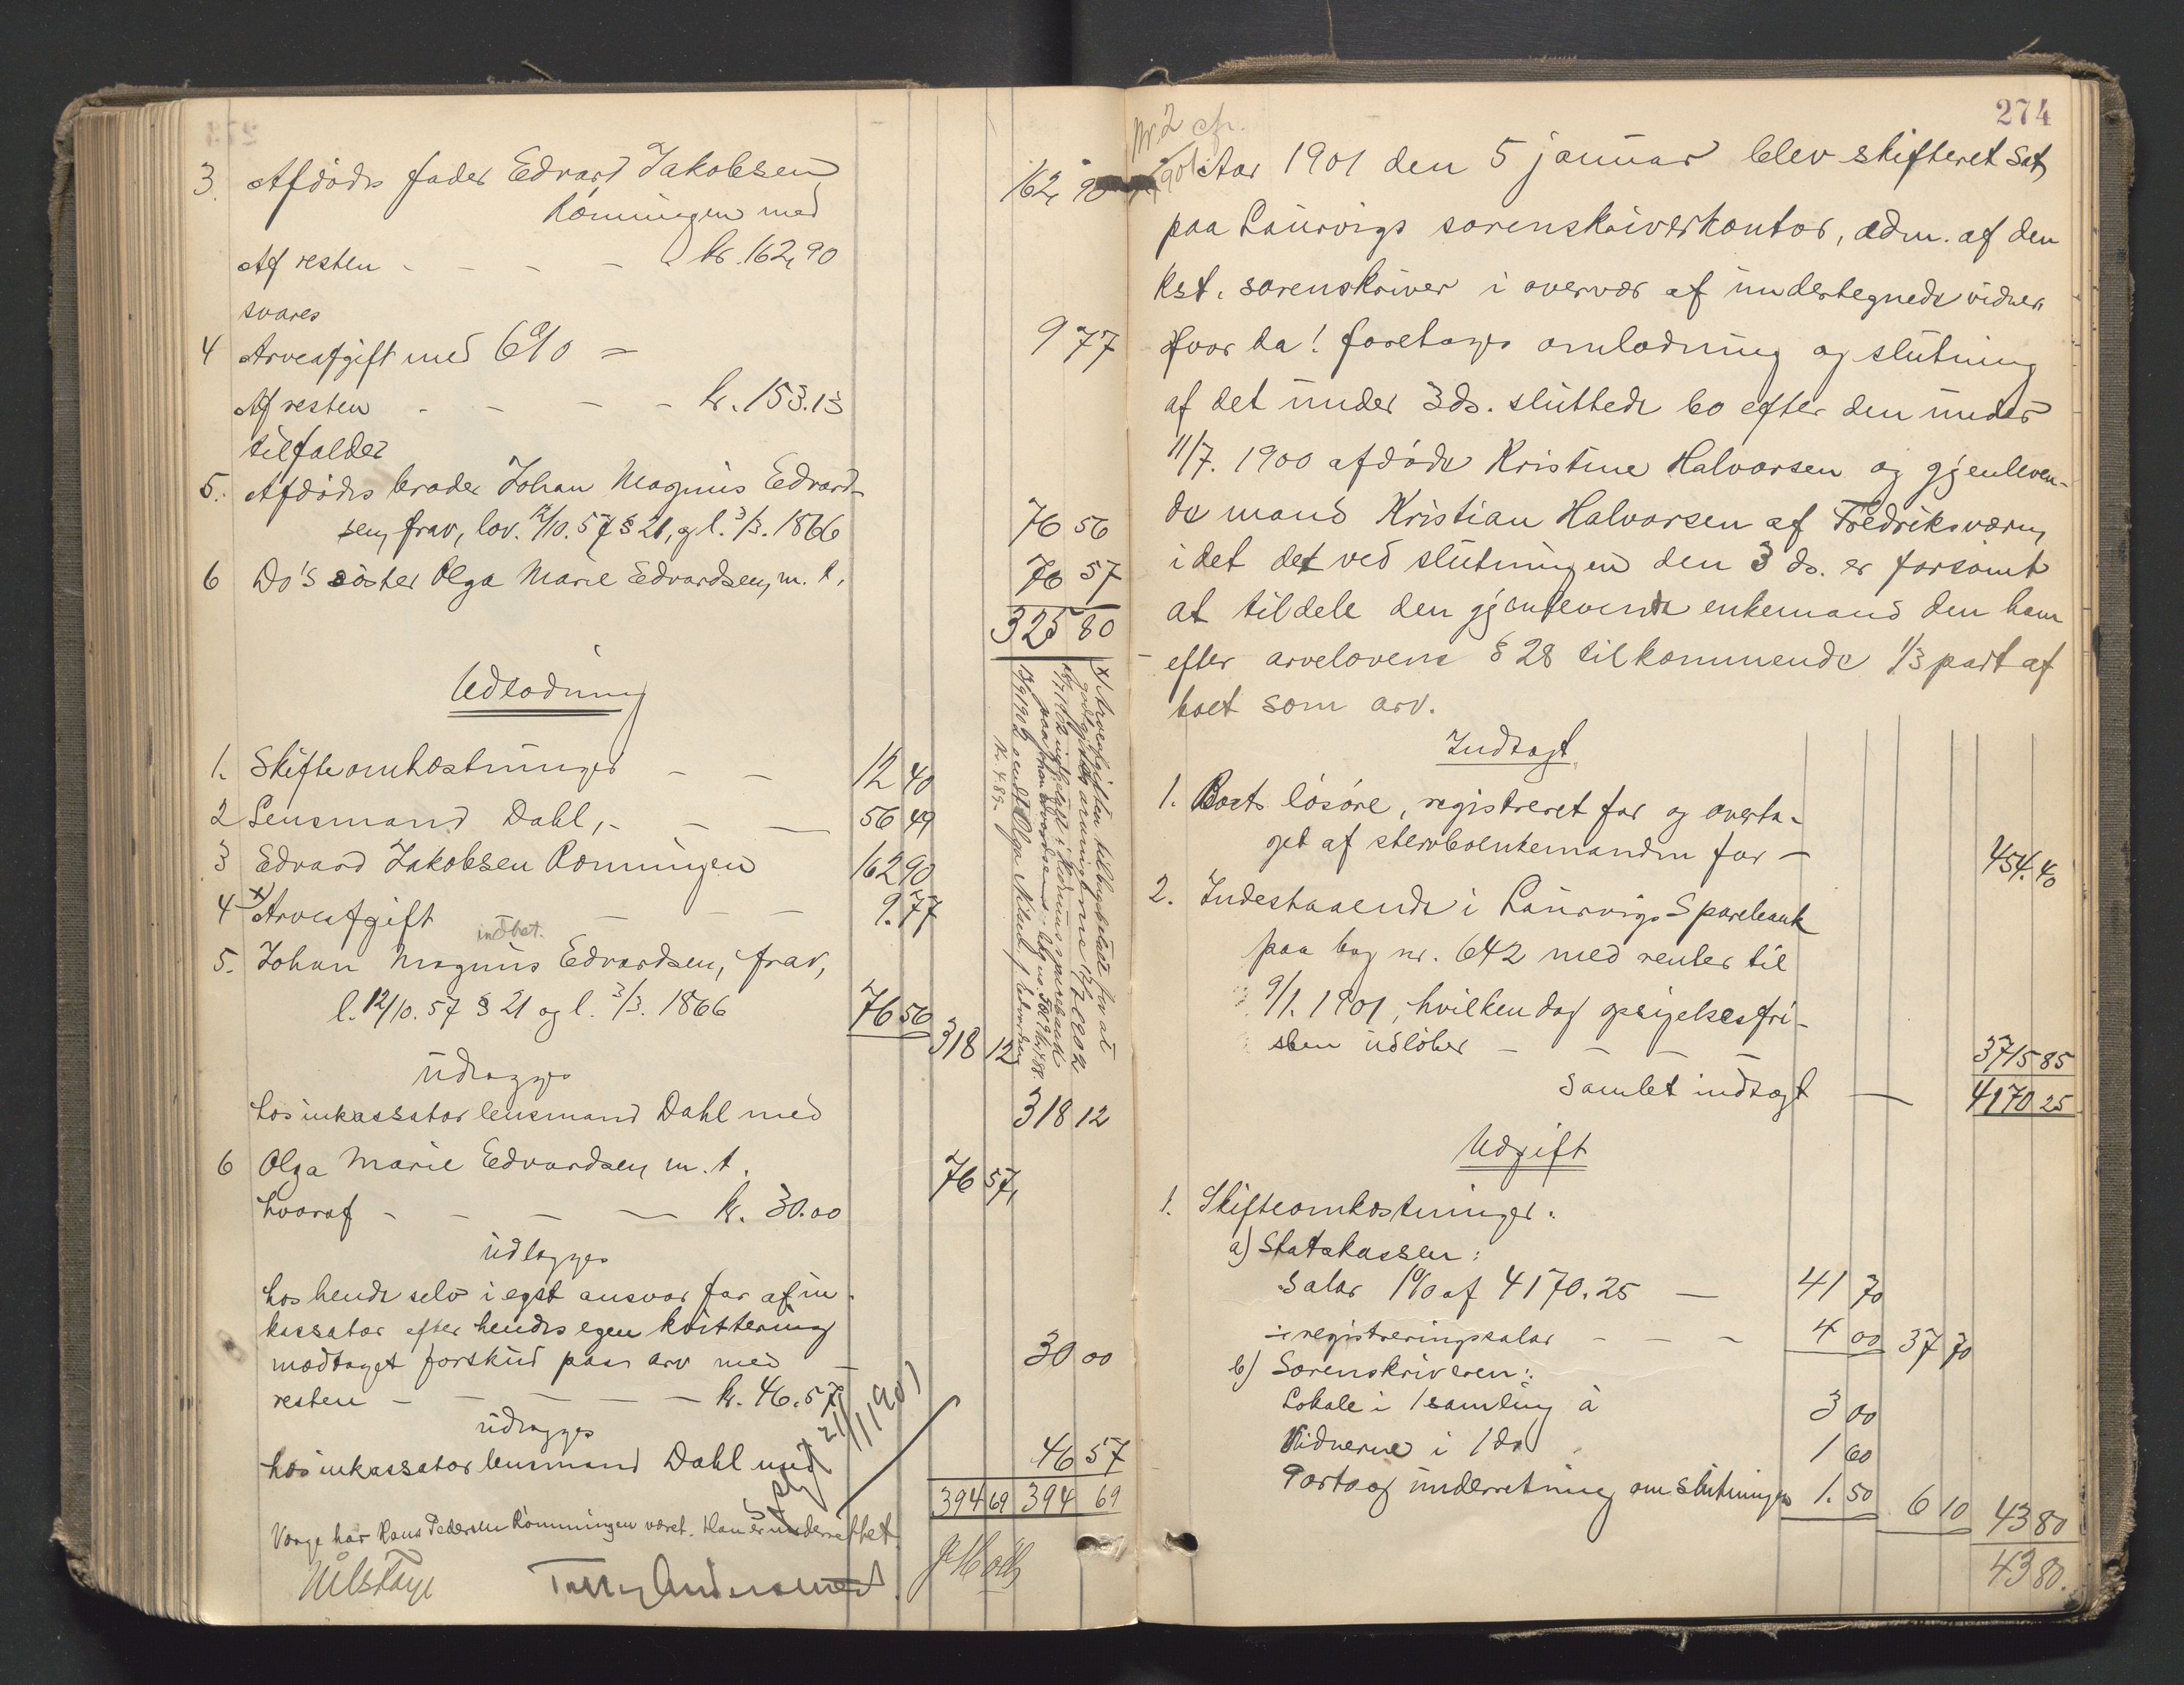 3. Afdødes fader Edvard Jakobsen
Rømningen med 162,90
Af resten - - - - kr. 162,90
svares
4 Arveafgift med 6% = 9 77
Af resten - - - - kr. 153.13
tilfalder
5. Afdødes broder Johan Magnus Edvard-
sen, frav, lov. 12/10. 57 § 21, og l. 3/3. 1866 76 56
6 Do's søster Olga Marie Edvardsen, m. t. 76 57
325 80
Udlodning
1. Skifteomkostninger - - 12 40
2 Lensmand Dahl, - - - 56 49
3 Edvard Jakobsen Rømningen 162 90
4 x) Arveafgift - - 9.77
indbet.
5. Johan Magnus Edvardsen, frav,
l. 12/10. 57 § 21 og l. 3/3. 1866 76 56 318 12
udlægges
hos inkassator lensmand Dahl med 318 12
6 Olga Marie Edvardsen, m. t. 76 57,
hvoraf - - - - kr. 30.00
udlægges
hos hende selv i eget ansvar for af in-
kassator efter hendes egen kvittering
modtaget forskud paa arv med - 30 00
resten - - - - kr. 46.57
udlægges
hos inkassator lensmand Dahl med 46 57
394 69 394 69
21/1 1901
Værge har Hans Pedersen Rømningen været. Han er underrettet.
x) Arveafgiften tilbagebetalt
Nr. 489.
274
Nr. 2
1901
Aar 1901 den 5 januar blev skifteret sat
paa Laurvigs sorenskriverkontor, adm. af den
kst. sorenskriver i overvær af undertegnede vidner.
Hvor da! foretoges omlodning og slutning
af det under 3 ds. sluttede bo efter den under
11/7. 1900 afdøde Kristine Halvorsen og gjenleven-
de mand Kristian Halvorsen af Fredriksværn,
idet det ved slutningen den 3 ds. er forsømt
at tildele den gjenlevende enkemand den ham
efter arvelovens § 28 tilkommende 1/3 part af
boet som arv.
Indtægt
1. Boets løsøre, registreret for og overta-
get af stervboenkemanden for - 454.40
2. Indestaaende i Laurvigs Sparebank
paa bog nr. 642 med renter til
9/1. 1901, hvilken dag opsigelsesfri-
sten udløber - - - - 3715 85
Samlet indtægt - 4170 25
Udgift
1. Skifteomkostninger:
a) Statskassen:
Salær 1% af 4170.25 - 41 70
÷ registreringssalær - - - 4 00 37 70
b) Sorenskriveren:
Lokale i 1 samling à 3 00
Vidnerne i 1 do 1 60
Porto og underretning om slutningen 1.50 6 10 43 80
43 80.